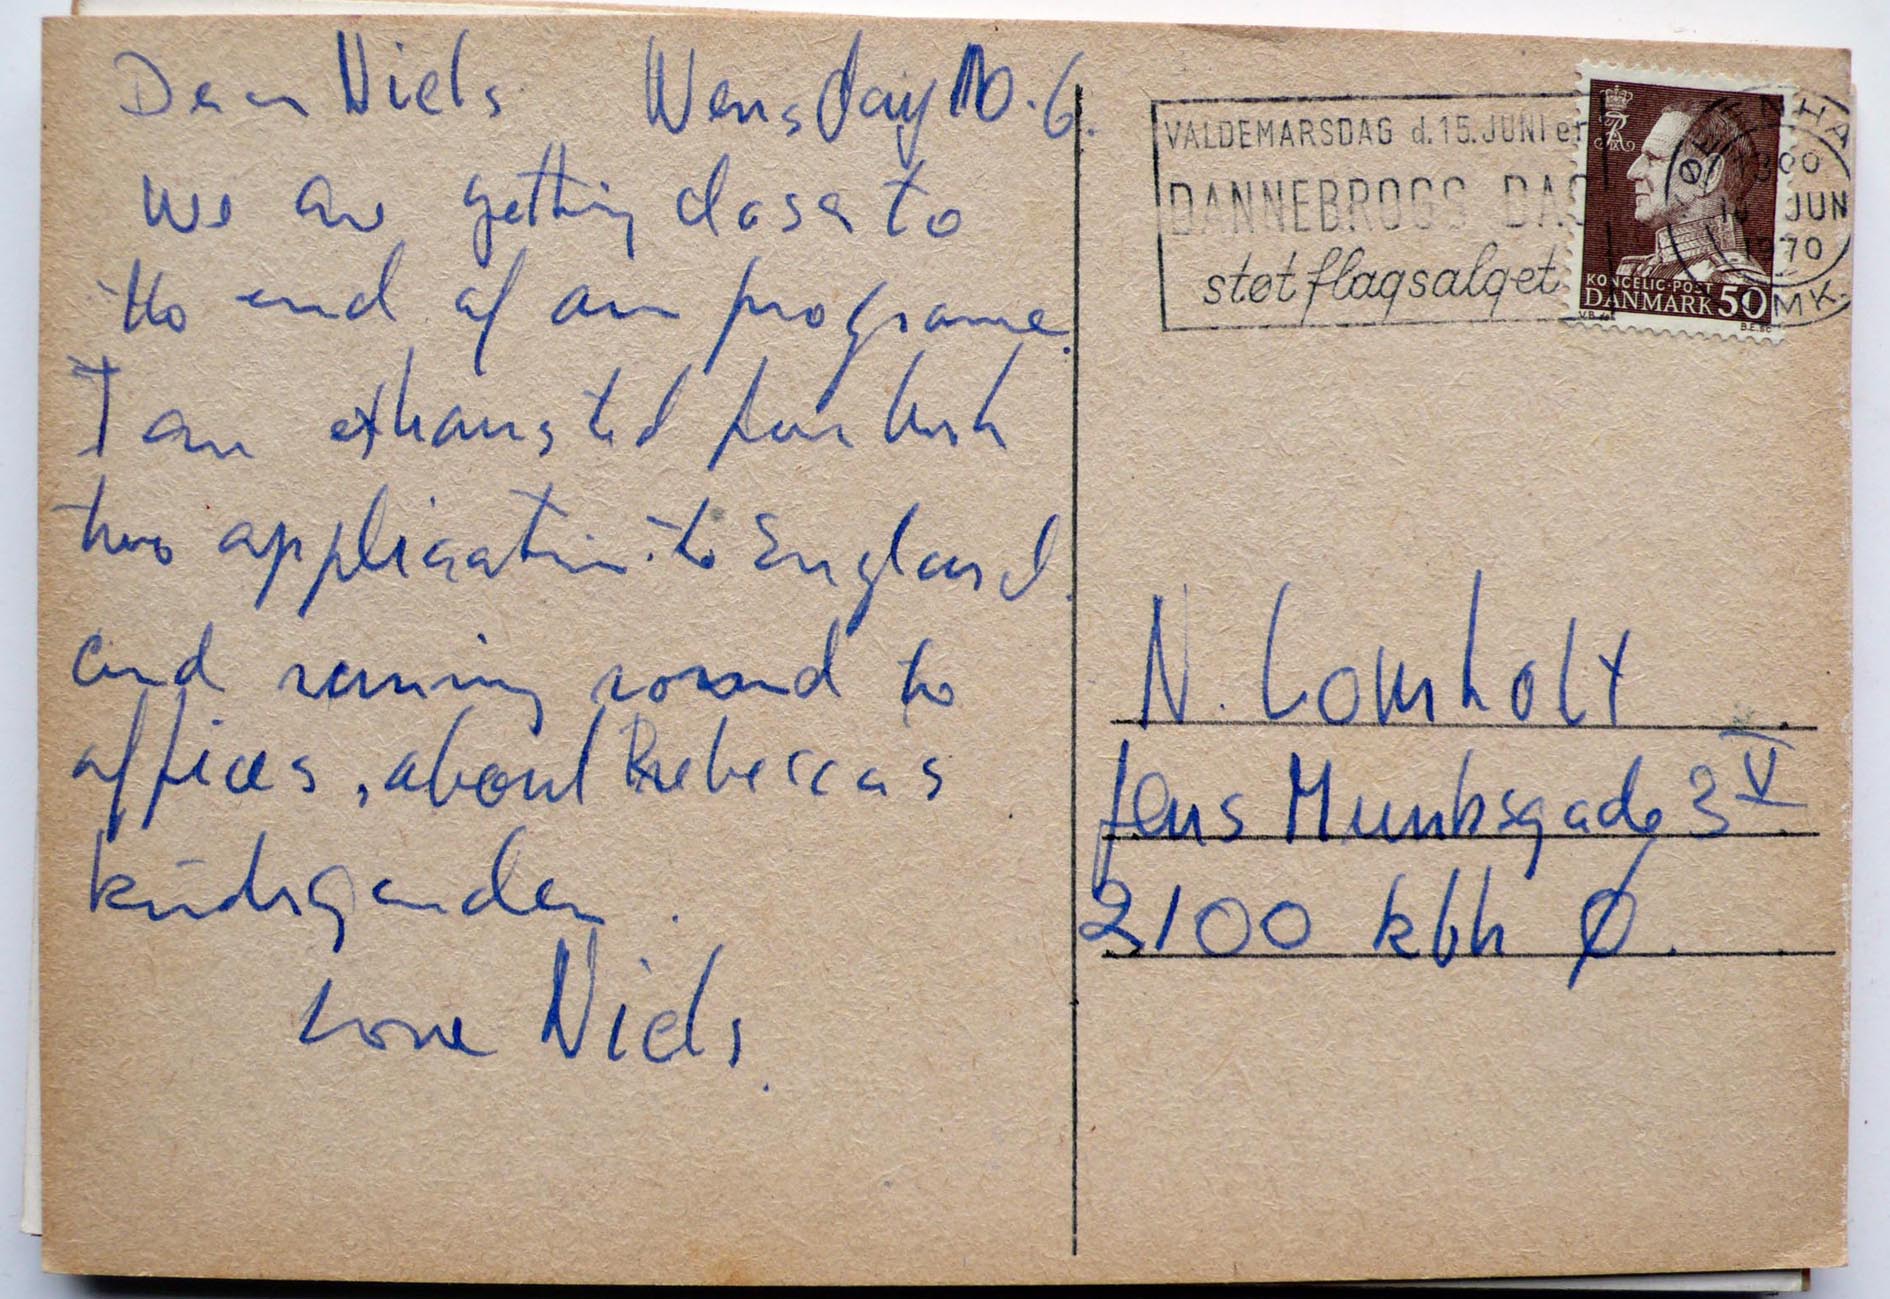 Dear Niels Wensday 10.6.
we are getting closer to
the end of our programe.
I am exhausted from
two application to England.
and running round to
offices, about Rebeccas
kindergarden.
Love Niels.
VALDEMARSDAG d. 15. JUNI er
DANNEBROGS DAG
støt flagsalget
KØBENHA
JUN
1970
DMK.
KONGELIG POST
DANMARK 50
N. Lomholt
Jens Munksgade 3 V
2100 kbh Ø.